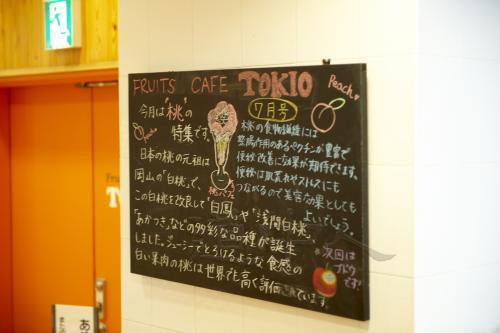 FRUITS CAFE TOKIO
Peach
7月号
今月は"桃"の
特集です。
Peach
日本の桃の元祖は
岡山の「白桃」で、
この白桃を改良して「白鳳」や「浅間白桃」、
「あかつき」などの多彩な品種が誕生
しました。ジューシーでとろけるような食感の
白い果肉の桃は世界でも高く評価されています。
桃パフェ
桃の食物繊維には
整腸作用のあるペクチンが豊富で
便秘改善に効果が期待できます。
便秘は肌荒れやストレスにも
つながるので美容効果としても
よいでしょう。
次回は
ブドウ
です!